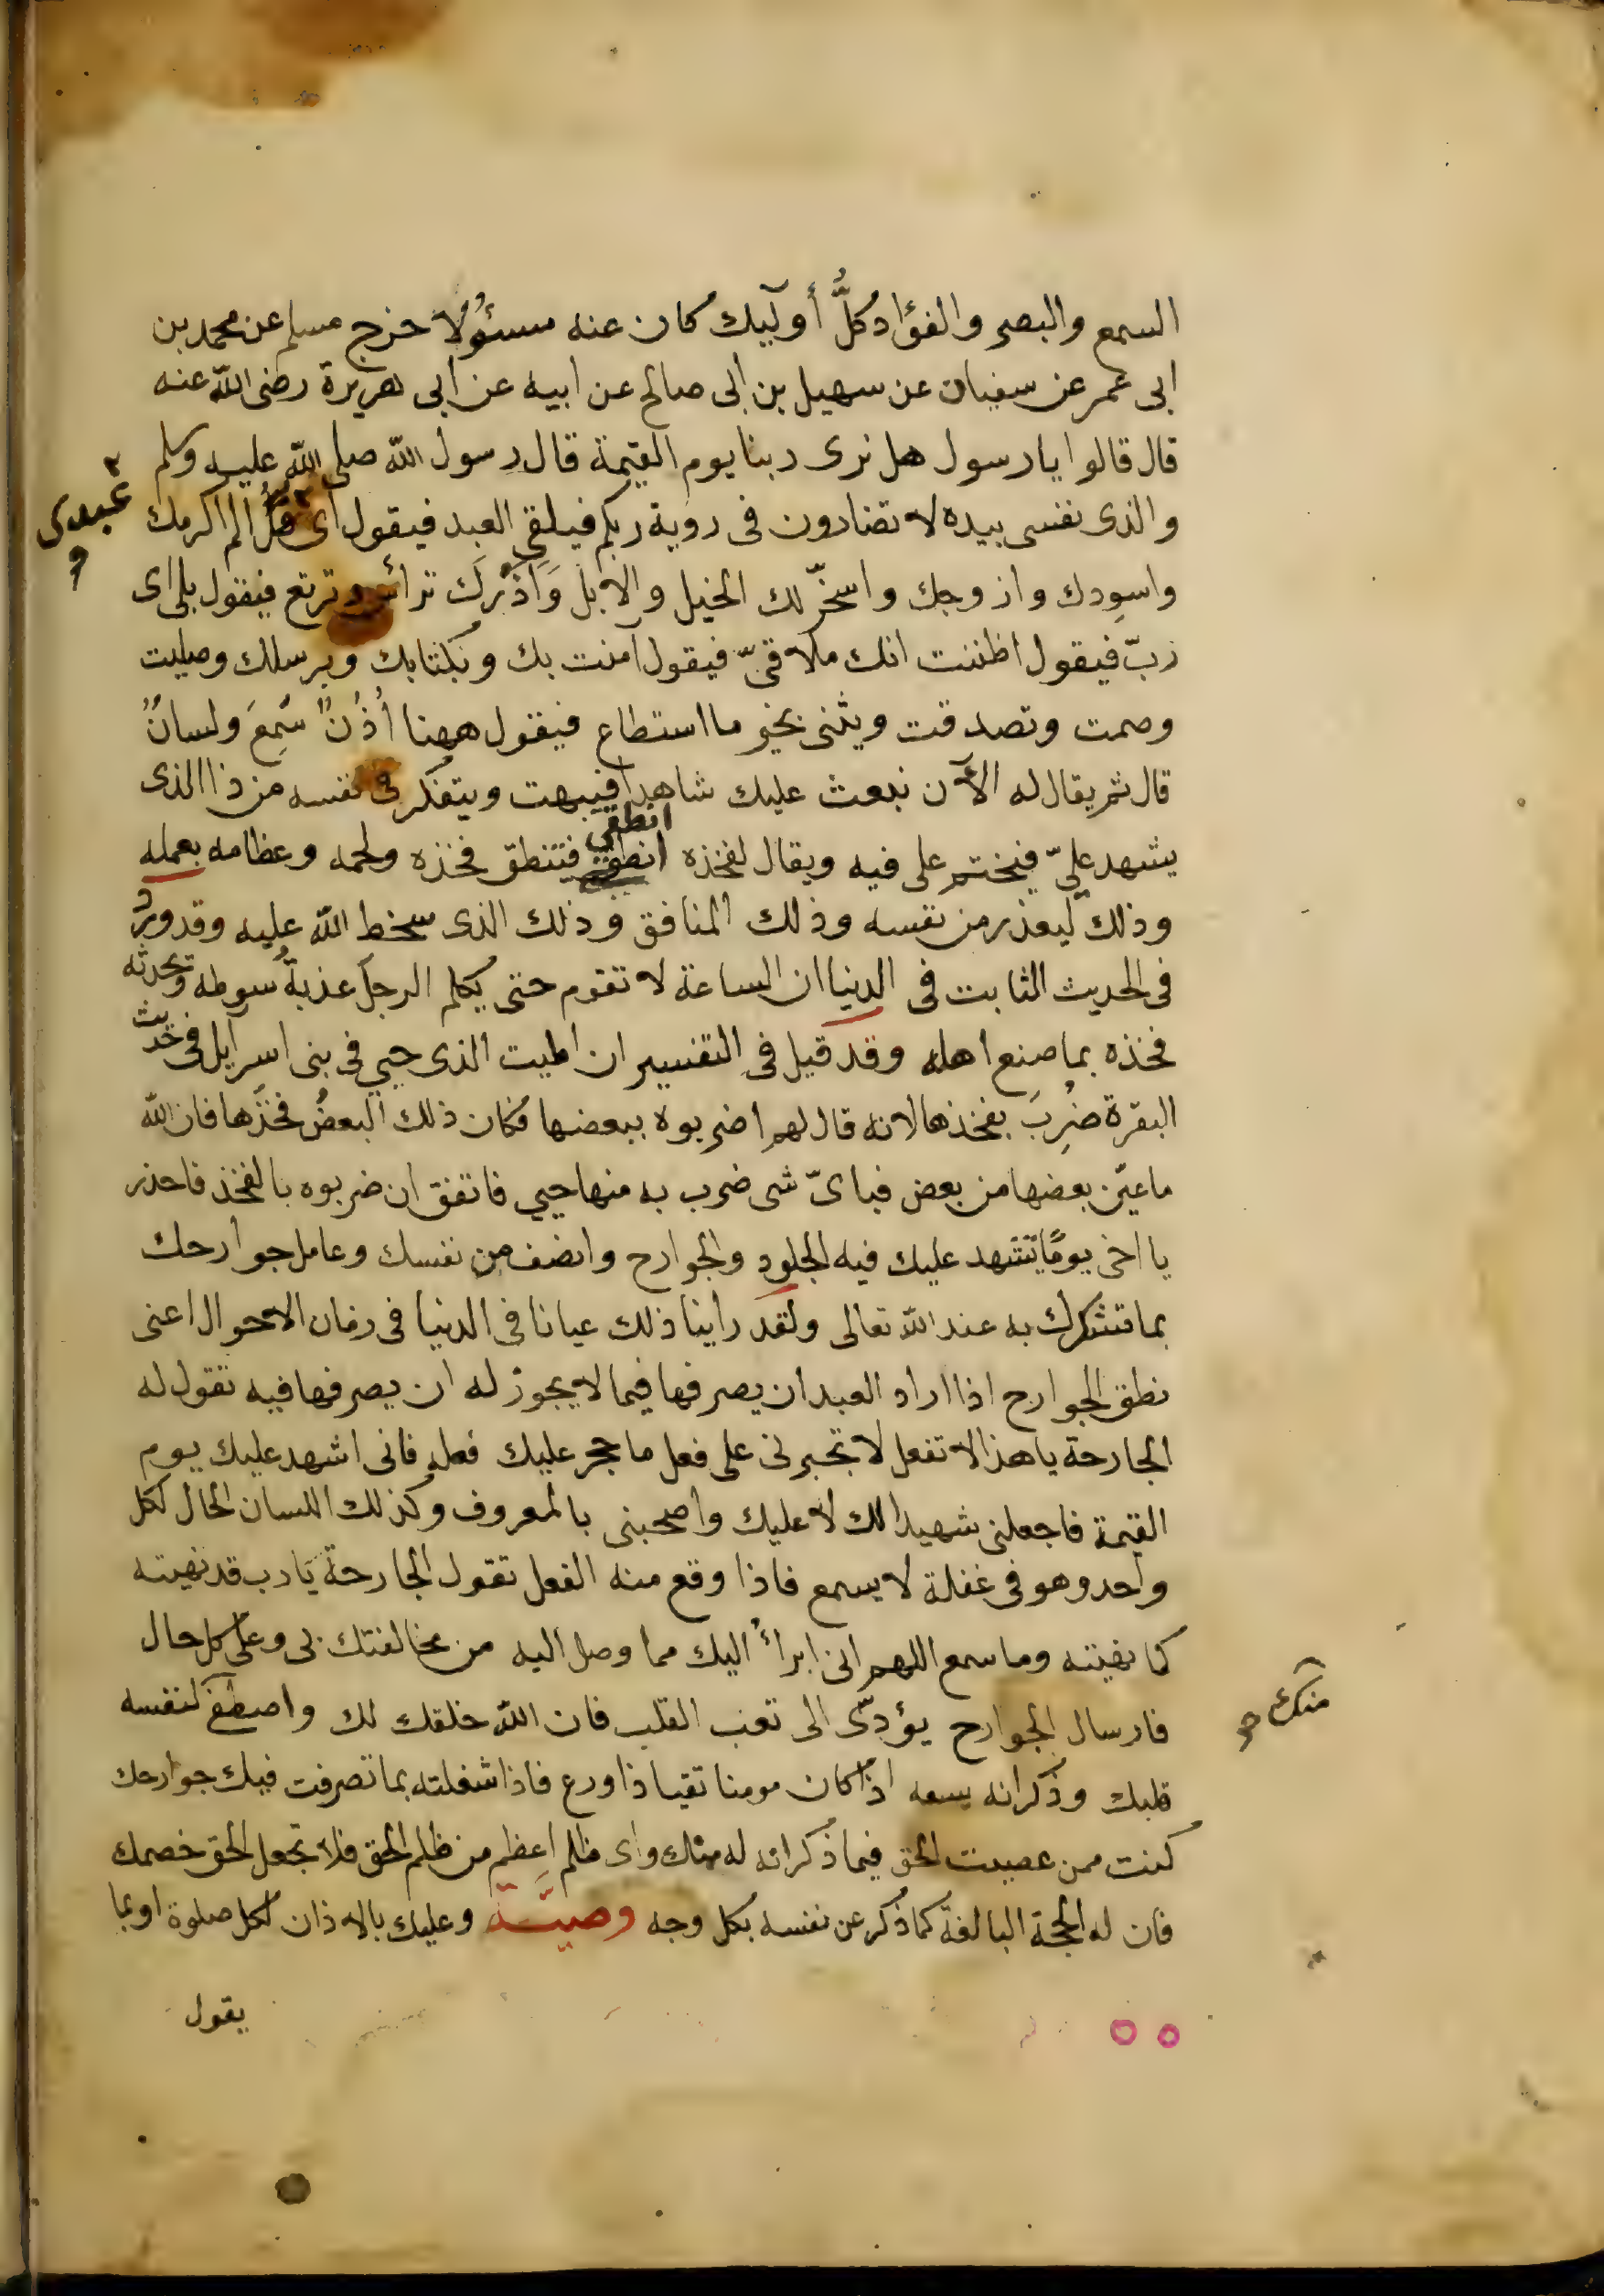 السمع والبصر والفؤاد كلُّ أوليك كان عنه مسئوُلاً خرج مسلم عن محمد بن
ابى عمر عن سفيان عن سهيل بن ابى صالح عن ابيه عن ابى هريرة رضى الله عنه
قال قالوا يا رسول هل نرى ربنا يوم القيمة قال رسول الله صلى الله عليه وسلم
والذى نفسى بيده لا تضارون فى روية ربكم فيلقى العبد فيقول اى فُلُ الم اكرمك
عبدى
واسودك وازوجك واسخّر لك الخيل والابل وَاَذَرَك ترأس وترتع فيقول بلى اى
ربّ فيقول اظننت انك ملاقىّ فيقول آمنت بك وبكتابك وبرسلك وصليت
وصمت وتصدقت ويثنى بخير ما استطاع فيقول ههنا أُذُنٌ سَمِعَ ولسانٌ
قال ثم يقال له الآن نبعث عليك شاهدا فيبهت ويتفكر فى نفسه من ذا الذى
يشهد علىّ فيختم على فيه ويقال لفخذه انطقى فتنطق فخذه ولحمه وعظامه بعمله
انطقي
وذلك ليعذر من نفسه وذلك المنافق وذلك الذى سخط الله عليه وقد ورد
فى الحديث الثابت فى الدنيا ان الساعة لا تقوم حتى يكلم الرجلَ عذبةُ سوطه وتحدثه
فخذه بما صنع اهله وقد قيل فى التفسير ان الميت الذى حيي فى بنى اسرآيل فى حديث
البقرة ضُرِبَ بفخذها لانه قال لهم اضربوه ببعضها فكان ذلك البعضُ فخذَها فان الله
ما عيّن بعضها من بعض فباىّ شى ضرب به منها حيي فاتفق ان ضربوه بالفخذ فاحذر
يا اخى يومًا تشهد عليك فيه الجلود والجوارح وانصف من نفسك وعامل جوارحك
بما تشكرك به عند الله تعالى ولقد راينا ذلك عيانا فى الدنيا فى زمان الاحوال اعنى
نطق الجوارح اذا اراد العبد ان يصرفها فيما لا يجوز له ان يصرفها فيه تقول له
الجارحة يا هذا لا تفعل لا تجبرنى على فعل ما حجر عليك فعله فانى اشهد عليك يوم
القيمة فاجعلنى شهيدا لك لا عليك واصحبنى بالمعروف وكذلك اللسان الحال لكل
واحد وهو فى غفلة لا يسمع فاذا وقع منه الفعل تقول الجارحة يَا رب قد نهيته
كما نهيته وما سمع اللهم انى ابرأُ اليك مما وصل اليه من مخالفتك بى وعلى كل حال
فارسال الجوارح يؤدّى الى تعب القلب فان الله خلقك لك واصطفى لنفسه
منك
قلبك وذكر انه يسعه اذا كان مومنا تقيا ذا ورع فاذا شغلته بما تصرفت فيك جوارحك
كنت ممن عصيت الحق فيما ذكر انه له منك واى ظلم اعظم من ظلم الحق فلا تجعل الحق خصمك
فان له الحجة البالغة كما ذكر عن نفسه بكل وجه وصيَّة وعليك بالاذان لكل صلوة او بما
يقول